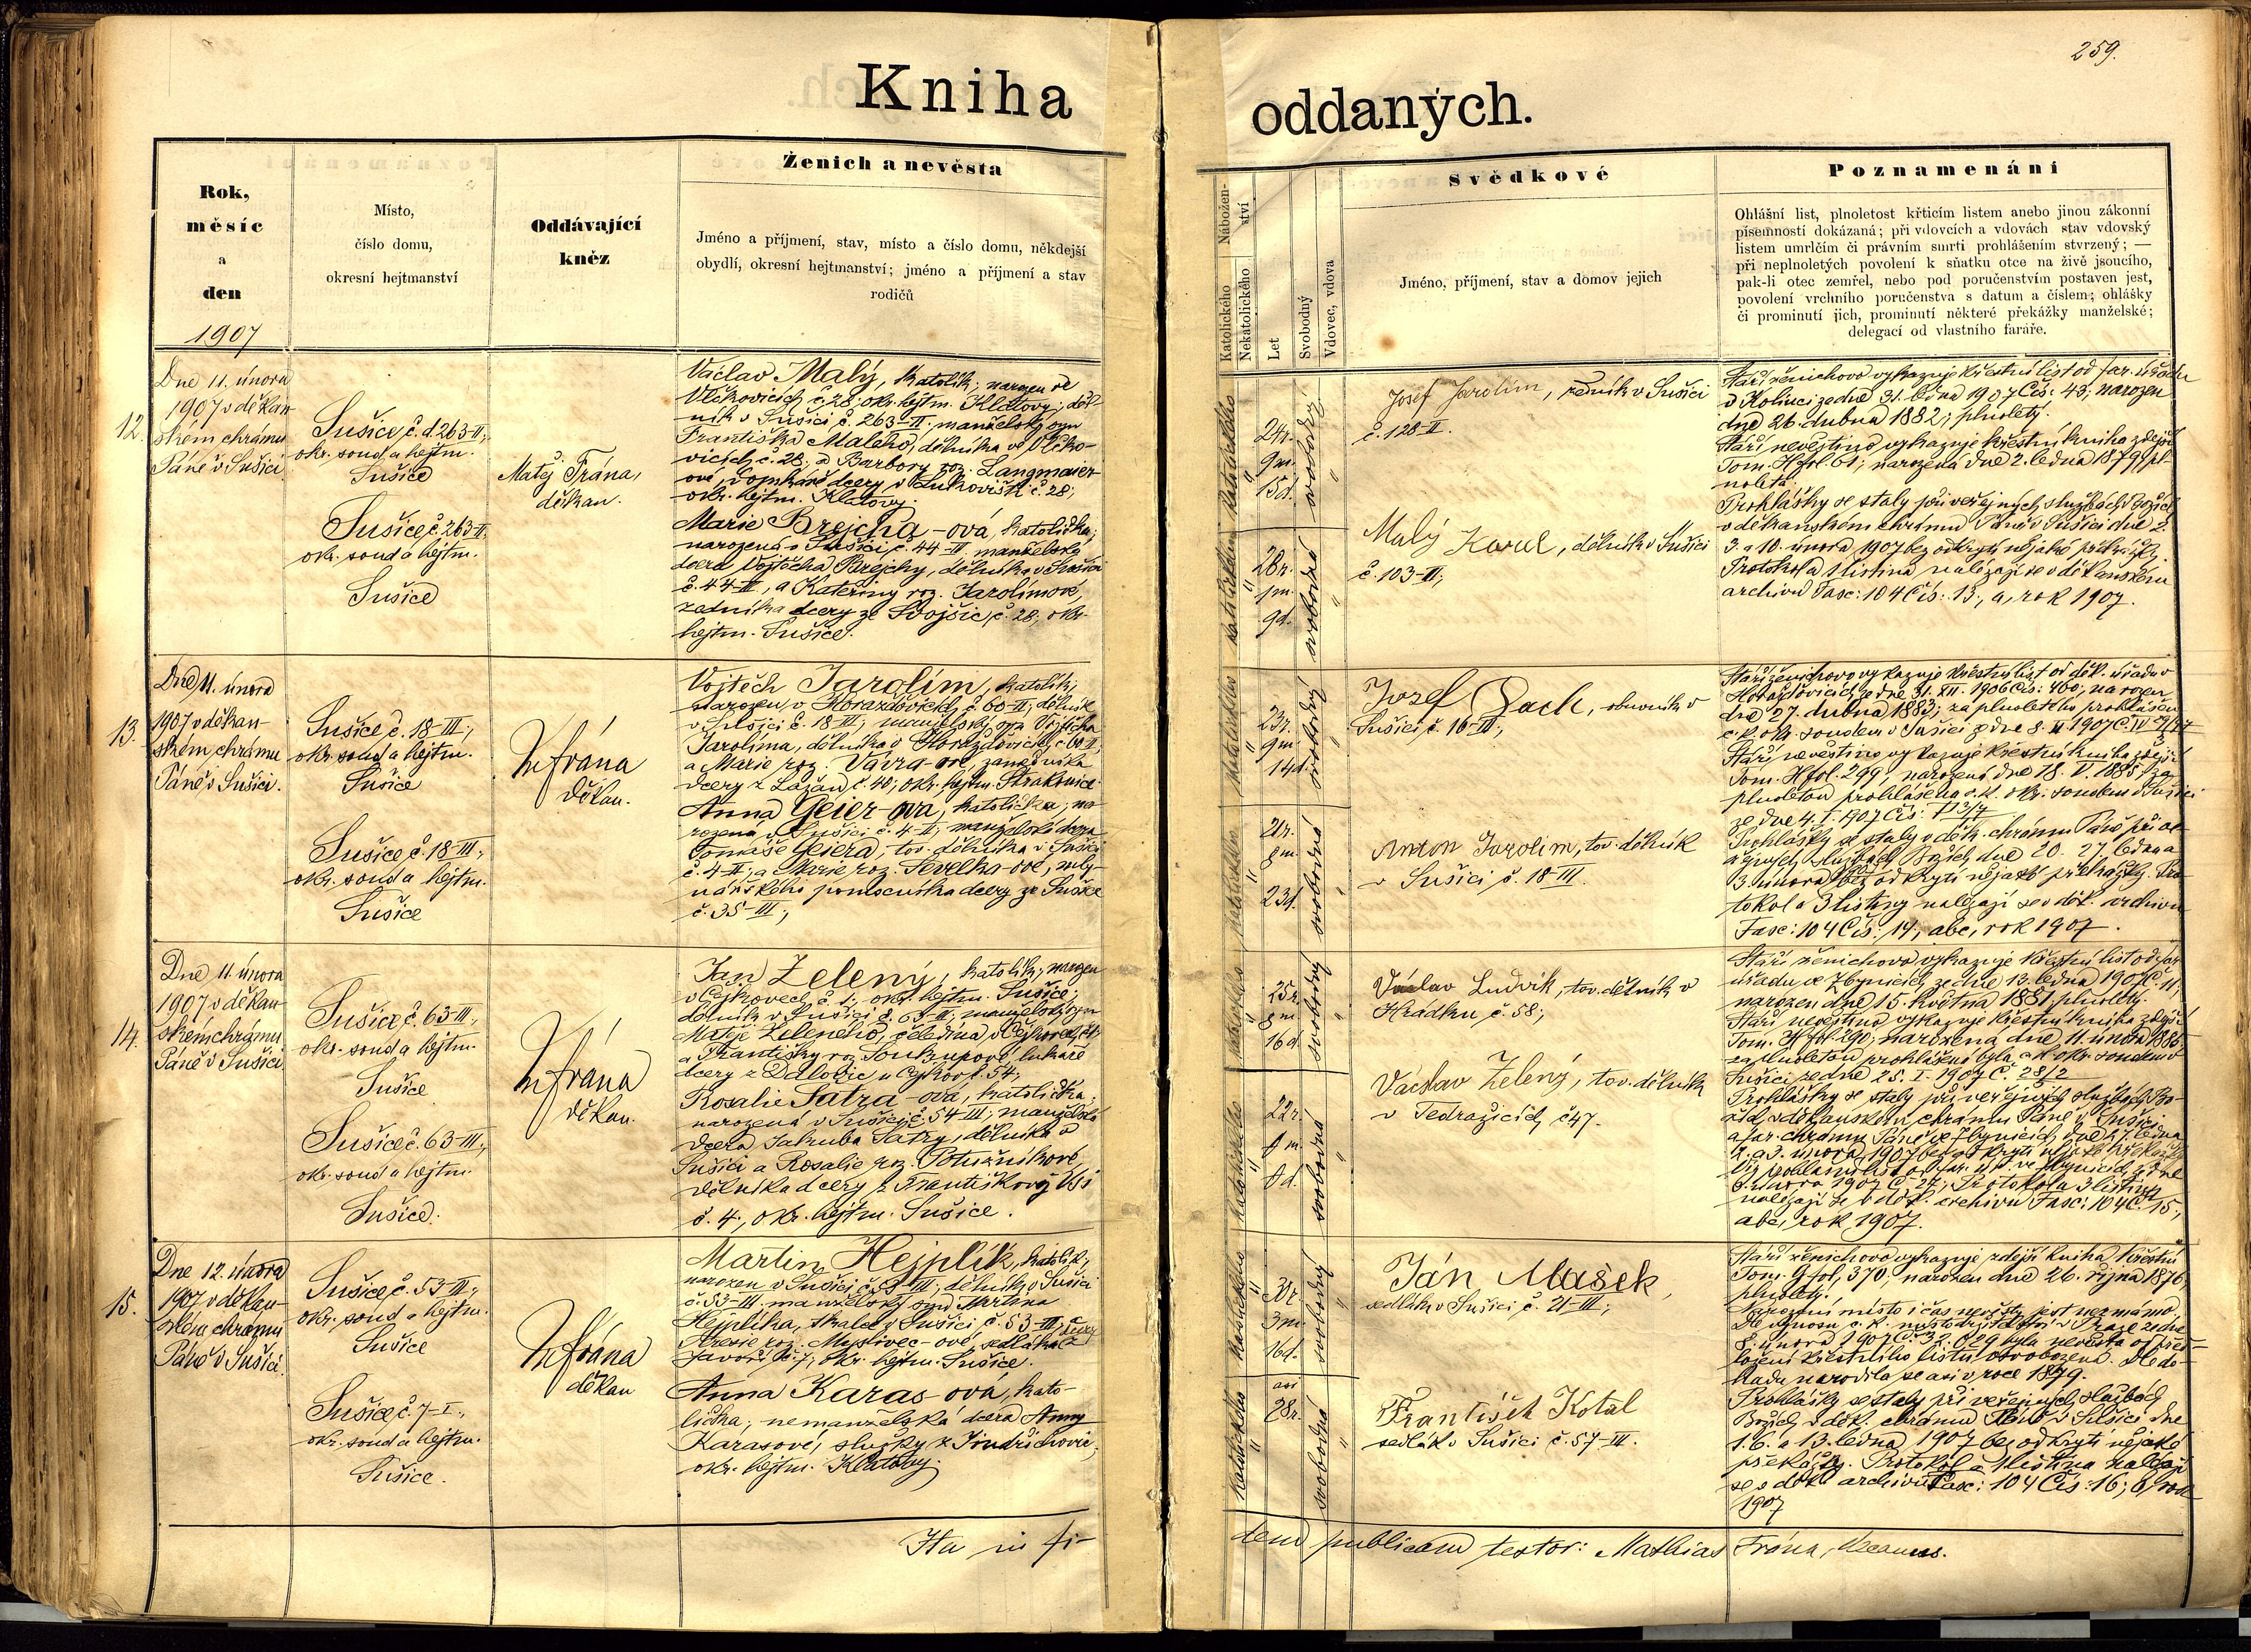 259.
Kniha oddaných.
Rok,
měsíc
a
den
1907
Místo,
číslo domu,
okresní hejtmanství
Oddávající
kněz
Ženich a nevěsta
Jméno a příjmení, stav, místo a číslo domu, někdejší
obydlí, okresní hejtmanství; jméno a příjmení a stav
rodičů
Nábožen-
ství
Katolického
Nekatolického
Let
Svobodný
Vdovec, vdova
Svědkové
Jméno, příjmení, stav a domov jejich
Poznamenání
Ohlášní list, plnoletost křticím listem anebo jinou zákonní
písemností dokázaná; při vdovcích a vdovách stav vdovský
listem umrlčím či právním smrti prohlášením stvrzený; —
při neplnoletých povolení k sňatku otce na živě jsoucího,
pak-li otec zemřel, nebo pod poručenstvím postaven jest,
povolení vrchního poručenstva s datum a číslem; ohlášky
či prominutí jich, prominutí některé překážky manželské;
delegací od vlastního faráře.
12.
Dne 11. února
1907 v děkan-
ském chrámu
Páně v Sušici.
Sušice, č. d. 263-II;
okr. soud a hejtm.
Sušice
Sušice, č. 263-II.
okr. soud a hejtm.
Sušice
Matěj Frána,
děkan.
Václav Malý, katolík; narozen ve
Vlčkovicích č. 28; okr. hejtm. Klatovy; děl-
ník v Sušici č. 263-II. manželský syn
Františka Malého, dělníka ve Vlčko-
vicích č. 28; a Barbory roz. Langmaier-
ové, dcery v č. 28;
okr. hejtm. Klatovy.
Marie Brejcha-ová, katolička;
narozená v Sušici č. 44-II. manželská
dcera Vojtěcha Brejchy, dělníka v Sušici
č. 44-II, a Kateřiny roz. Jarolímové,
dcery ze Svojšic, č. 28; okr.
hejtm. Sušice.
katolického
24r.
9m.
15d.
svobodný
katolického
28r.
1m.
9d.
svobodná
Josef Jarolím, řezník v Sušici
č. 128-II.
Malý Karel, dělník v Sušici
č. 103-II;
Stáří ženichovo vykazuje křestní list od far. úřadu
v Kolinci ze dne 31. ledna 1907 Čís: 43; narozen
dne 26. dubna 1882; plnoletý.
Stáří nevěstino vykazuje křestní kniha zdejší
Tom. H fol. 61; narozená dne 2. ledna 1879, pl-
noletá.
Prohlášky se staly při veřejných službách Božích
v děkanském chrámu Páně v Sušici dne 2.
3. a 10. února 1907 bez odkrytí nějaké překážky.
Protokol a 1 listina nalézají se v děkanském
archivu Fasc: 104 Čís: 13; a, rok 1907.
13.
Dne 11. února
1907 v děkan-
ském chrámu
Páně v Sušici.
Sušice č. 18-III;
okr. soud a hejtm.
Sušice
Sušice, č. 18-III;
okr. soud a hejtm.
Sušice
M Frána
děkan.
Vojtěch Jarolím, katolík;
narozen v Horažďovicích č. 60-II; dělník
v Sušici č. 18-III; manželský syn Vojtěcha
Jarolíma, dělníka v Horažďovicích, č. 60-II,
a Marie roz. Vávra-ové,
dcery z Lažan č. 40; okr. hejtm. Strakonice
Anna Geier-ová, katolička; na-
rozená v Sušici č. 4-II; manželská dcera
Tomáše Geiera, tov. dělníka v Sušici
č. 4-II; a Marie roz. Ševelka-ové, mly-
nářského pomocníka dcery ze Sušice
č. 35-III;
katolického
23r.
9m.
14d.
svobodný
katolického
21r.
8m.
23d.
svobodná
Josef Pach, obuvník v
Sušici č. 16-III;
Anton Jarolím, tov. dělník
v Sušici č. 18-III.
Stáří ženichovo vykazuje křestní list od děk. úřadu v
Horažďovicích ze dne 31. XII. 1906 Čís: 460; narozen
dne 27. dubna 1883; za plnoletého prohlášen
c. k. okr. soudem v Sušici ze dne 8. II 1907
Stáří nevěstino vykazuje křestní kniha zdejší
Tom. H fol. 299, narozená dne 18. V. 1885; za
plnoletou prohlášena c. k. okr. soudem v Sušici
ze dne 4. I. 1907 Čís:
Prohlášky se staly v děk. chrámu Páně při ve-
řejných službách Božích dne 20. 27. ledna a
3. února bez odkrytí nějaké překážky. Pro-
tokol a 3 listiny nalézají se v děk. archivu
Fasc: 104 Čís: 14; abc, rok 1907.
14.
Dne 11. února
1907 v děkan-
ském chrámu
Páně v Sušici
Sušice č. 63-III;
okr. soud a hejtm.
Sušice
Sušice č. 63-III;
okr. soud a hejtm.
Sušice.
M Frána
děkan.
Jan Zelený, katolík; narozen
v Čejkovech č. 1; okr. hejtm. Sušice;
dělník v Sušici č. 63-III; manželský syn
Matěje Zeleného, čeledína v Čejkovech,
a Františky roz. Soukupové,
dcery z
Rosalie Šatra-ová, katolička;
narozená v Sušici č. 54-III; manželská
dcera Jakuba Šatry, dělníka v
Sušici a Rosalie roz. Potužníkové
dělníka dcery z Františkovy Vsi
č. 4; okr. hejtm. Sušice.
katolického
25r.
8m.
16d.
svobodný
katolického
22r.
svobodná
Václav Ludvík, tov. dělník v
Hrádku č. 58;
Václav Zelený, tov. dělník
v Tedražicích, č. 47.
Stáří ženichovo vykazuje křestní list od far.
úřadu ve Zbynicích ze dne 13. ledna 1907 Č. 11;
narozen dne 15. května 1881, plnoletý.
Stáří nevěstino vykazuje křestní kniha zdejší
Tom. H fol. 290; narozena dne 11. února 1885
za plnoletou prohlášena byla c. k. okr. soudem v
Sušici ze dne 25. I. 1907 Č. 28/2
Prohlášky se staly při veřejných službách Bo-
žích v děkanském chrámu Páně v Sušici
a far. chrámu Páně ve Zbynicích dne 27. ledna
2. a 3. února 1907 bez odkrytí nějaké překážky.
Protokol a 3 listiny
nalézají se v děk. archivu Fasc: 104 Č. 15;
abc, rok 1907.
15.
Dne 12. února
1907 v děkan-
ském chrámu
Páně v Sušici.
Sušice, č. 53-III;
okr. soud a hejtm.
Sušice
Sušice, č. 7-I;
okr. soud a hejtm.
Sušice.
M Frána
děkan
Martin Hejplík, katolík;
narozen v Sušici, č. 53-III; dělník v Sušici
č. 53-III. manželský syn Martina
Hejplíka, skaláka v Sušici č. 53-III; a
Terezie roz. Myslivec-ové, sedláka dcery
z Javoří č. 7; okr. hejtm. Sušice.
Anna Karas-ová, kato-
lička; nemanželská dcera Anny
Karasové, služky z Jindřichovic,
okr. hejtm. Klatovy.
katolického
30r.
3m.
16d.
svobodný
katolického
asi
28r.
svobodná
Ján Mašek,
sedlák v Sušici č. 21-III;
František Kotál
sedlák v Sušici č. 57-III.
Stáří ženichovo vykazuje zdejší kniha křestní
Tom. G fol. 370; narozen dne 26. října 1876;
plnoletý.
Narození místo i čas nevěsty jest neznámo.
Dle výnosu c. k. místodržitelství v Praze ze dne
8. února 1907 Č. 32.029 byla nevěsta od před-
ložení křestního listu osvobozena. Dle do-
kladu narodila se asi v roce 1879.
Prohlášky se staly při veřejných službách
Božích v děk. chrámu Páně v Sušici dne
1. 6. a 13. ledna 1907 bez odkrytí nějaké
překážky. Protokol a 1 listina nalézají
se v děk. archivu Fasc: 104 Čís: 16; b, rok
1907
Ita in fi-
dem publicam testor: Mathias Frána, decanus.